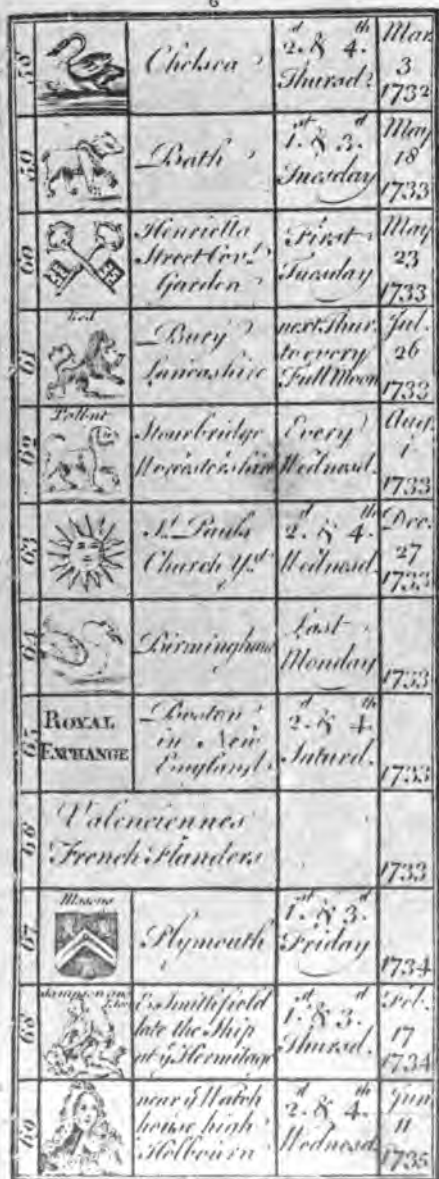 6
58
Chelsea
2.d & 4.th
Thursd.
Mar.
3
1732
59
Bath
1.st & 3.d
Tuesday
May
18
1733
60
Henrietta
Street Cov.t
Garden
First
Tuesday
May
23
1733
61
Red
Bury
Lancashire
next Thur.
to every
Full Moon
Jul.
26
1733
62
Talbut
Stourbridge
Worcestershire
Every
Wednesd.
Aug.
1
1733
63
St. Pauls
Church Yd.
2.d & 4.th
Wednesd.
Dec.
27
1733
64
Birmingham
Last
Monday
1733
65
ROYAL
EXCHANGE
Boston
in New
England
2.d & 4.th
Saturd.
1733
66
Valenciennes
French Flanders
1733
67
Masons
Plymouth
1.st & 3.d
Friday
1734
68
Sampson and
Lion
E. Smithfield
late the Ship
at ye Hermitage
1.st & 3.d
Thursd.
Feb.
17
1734
69
near ye Watch
house high
Holbourn
2.d & 4.th
Wednesd.
Jun
11
1735